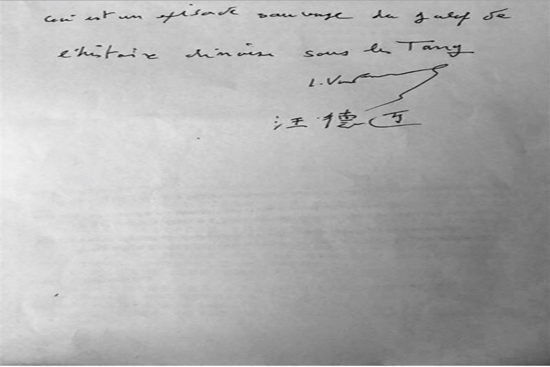 est un épisode sauvage du de
l'histoire chinoise sous les Tang
L. Van
汪德迈